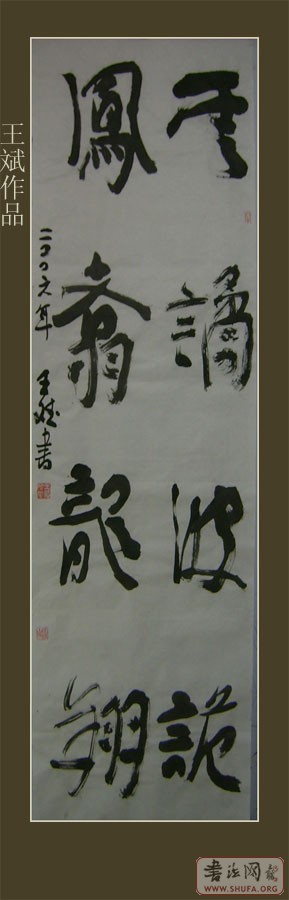 云譎波詭
鳳翥龍翔
二〇〇六年 王斌書
王斌作品
书法网
WWW.SHUFA.ORG